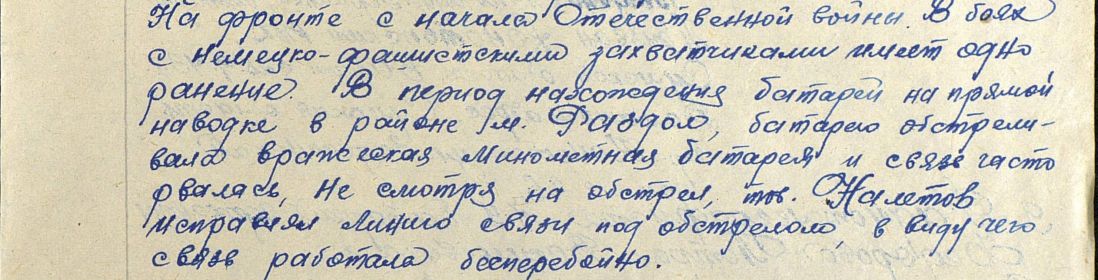 На фронте с начала Отечественной войны. В боях
с немецко-фашистскими захватчиками имеет одно
ранение. В период нахождения батареи на прямой
наводке в районе м. Раздол, батарею обстрели-
вала вражеская минометная батарея и связь часто
рвалась, Не смотря на обстрел, тов. Налетов
исправлял линию связи под обстрелом, в виду чего
связь работала бесперебойно.